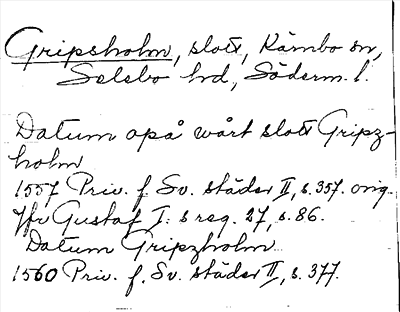 Gripsholm, slott, Kärnbo sn,
Selebo hd, Söderm. l.
Datum opå wårt slott Gripz-
holm
1557 Priv. f. Sv. städer II, s. 357. orig.
Jfr Gustaf I:s reg. 27, s. 86.
Datum Gripzholm
1560 Priv. f. Sv. städer II, s. 377.